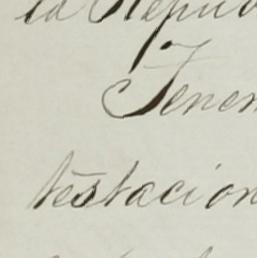 la Repúb
Tenen
testacion